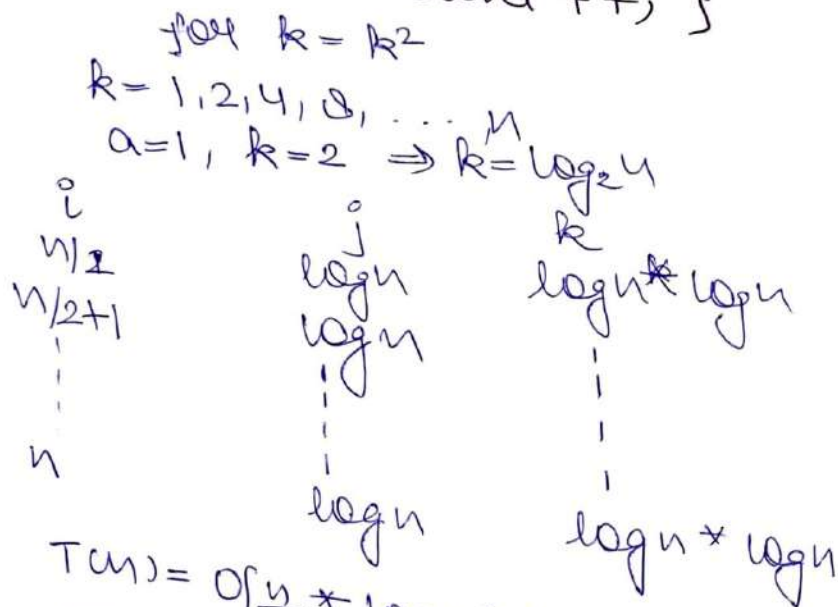 for k = k2
k = 1, 2, 4, 8, .... n
a=1, k=2 ⇒ k= log2n
i j k
n/2 logn logn * logn
n/2+1 logn
n logn logn * logn
T(n) = O(n *